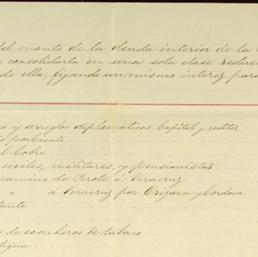 del monto de la deuda interior de la
consolidarla en una sola clase
de ella, fijando un mismo interes para
y arreglos diplomaticos Capital y reditos
del Cobre
civiles, militares, y pensionistas
camino de Perote á Veracruz
" á Veracruz por Orizava y Cordova
de cosecheros de tabaco